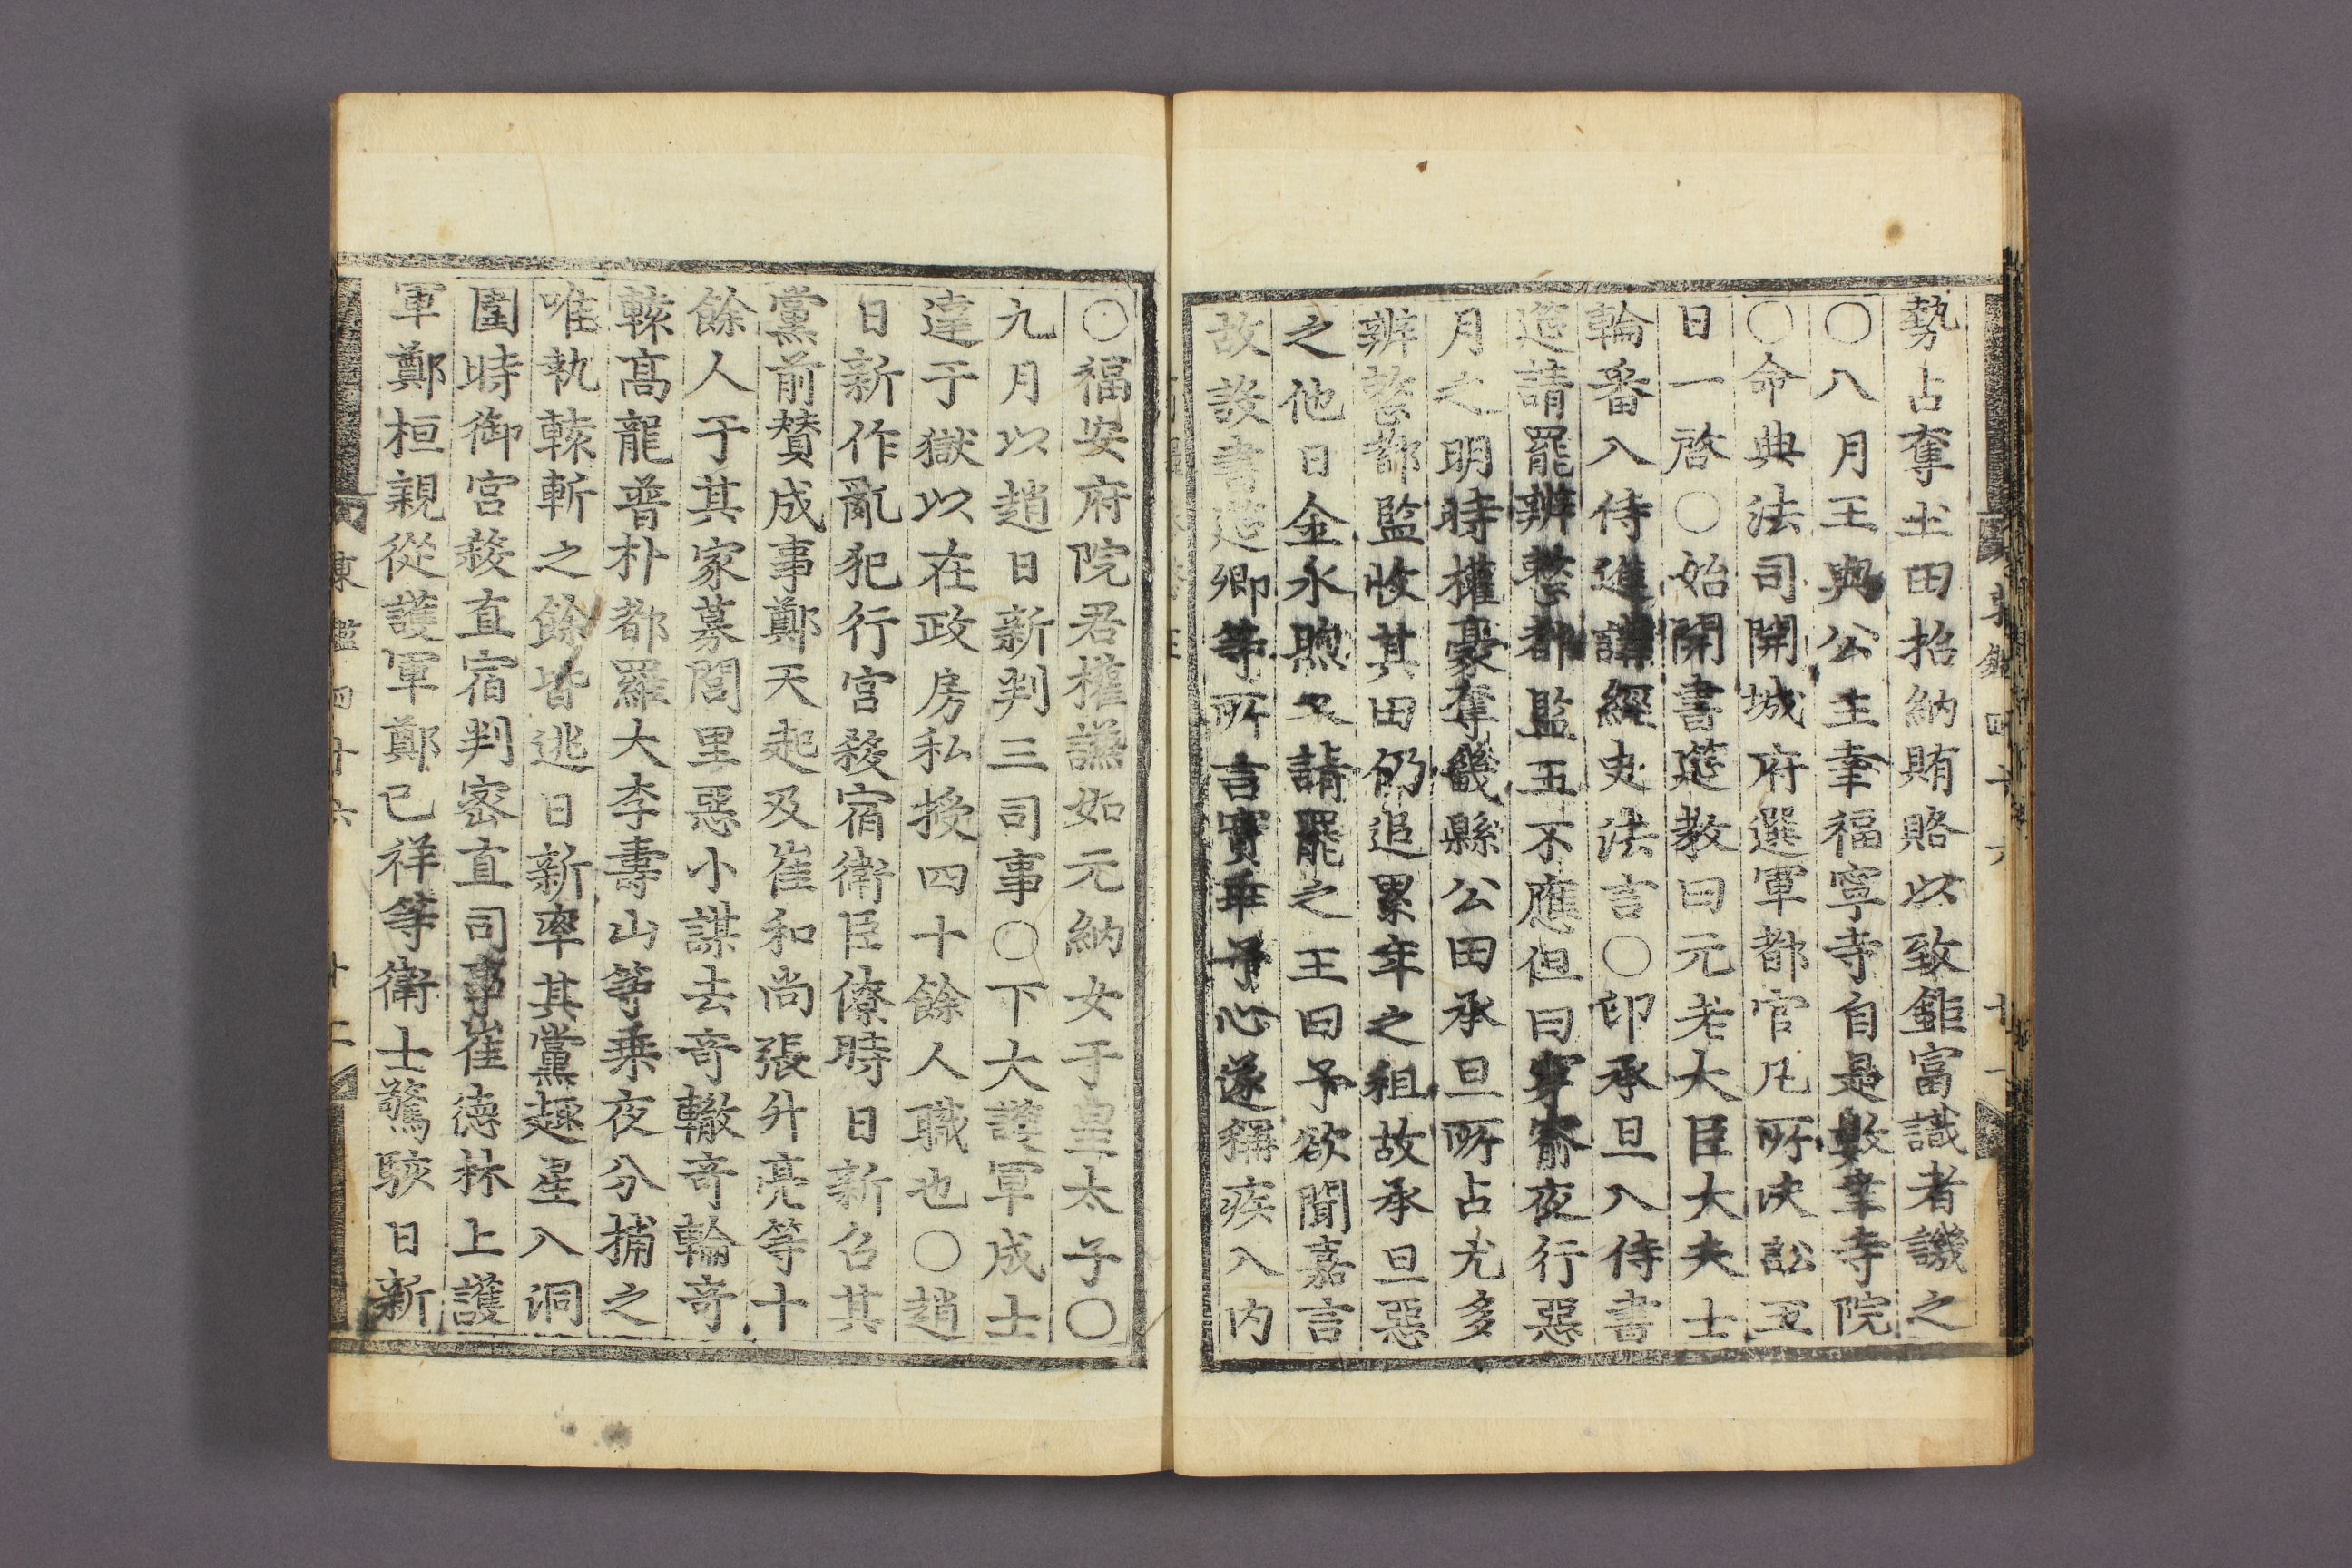 勢占奪土田招納賄賂以致鉅富識者譏之
○八月王與公主幸福寧寺自是數幸寺院
○命典法司開城府選軍都官凡所決訟五
日一啓○始開書筵教曰元老大臣大夫士
輪番入侍進講經史法言○印承旦入侍書
筵請罷辨整都監王不應但曰穿窬夜行惡
月之明時權豪奪畿縣公田承旦所占尤多
辨整都監收其田仍追累年之租故承旦惡
之他日金永煦又請罷之王曰予欲聞嘉言
故設書筵卿等所言實乖予心遂稱疾入内
東鑑四十六 十一
○福安府院君權謙如元納女于皇太子○
九月以趙日新判三司事○下大護軍成士
達于獄以在政房私授四十餘人職也○趙
日新作亂犯行宮殺宿衛臣僚時日新召其
黨前贊成事鄭天起及崔和尚張升亮等十
餘人于其家募閭里惡小謀去奇轍奇輪奇
轅高龍普朴都羅大李壽山等乗夜分捕之
唯執轅斬之餘皆逃日新率其黨趣星入洞
圍時御宮殺直宿判密直司事崔德林上護
軍鄭桓親從護軍鄭已祥等衛士驚駭日新
東鑑四十六 十二